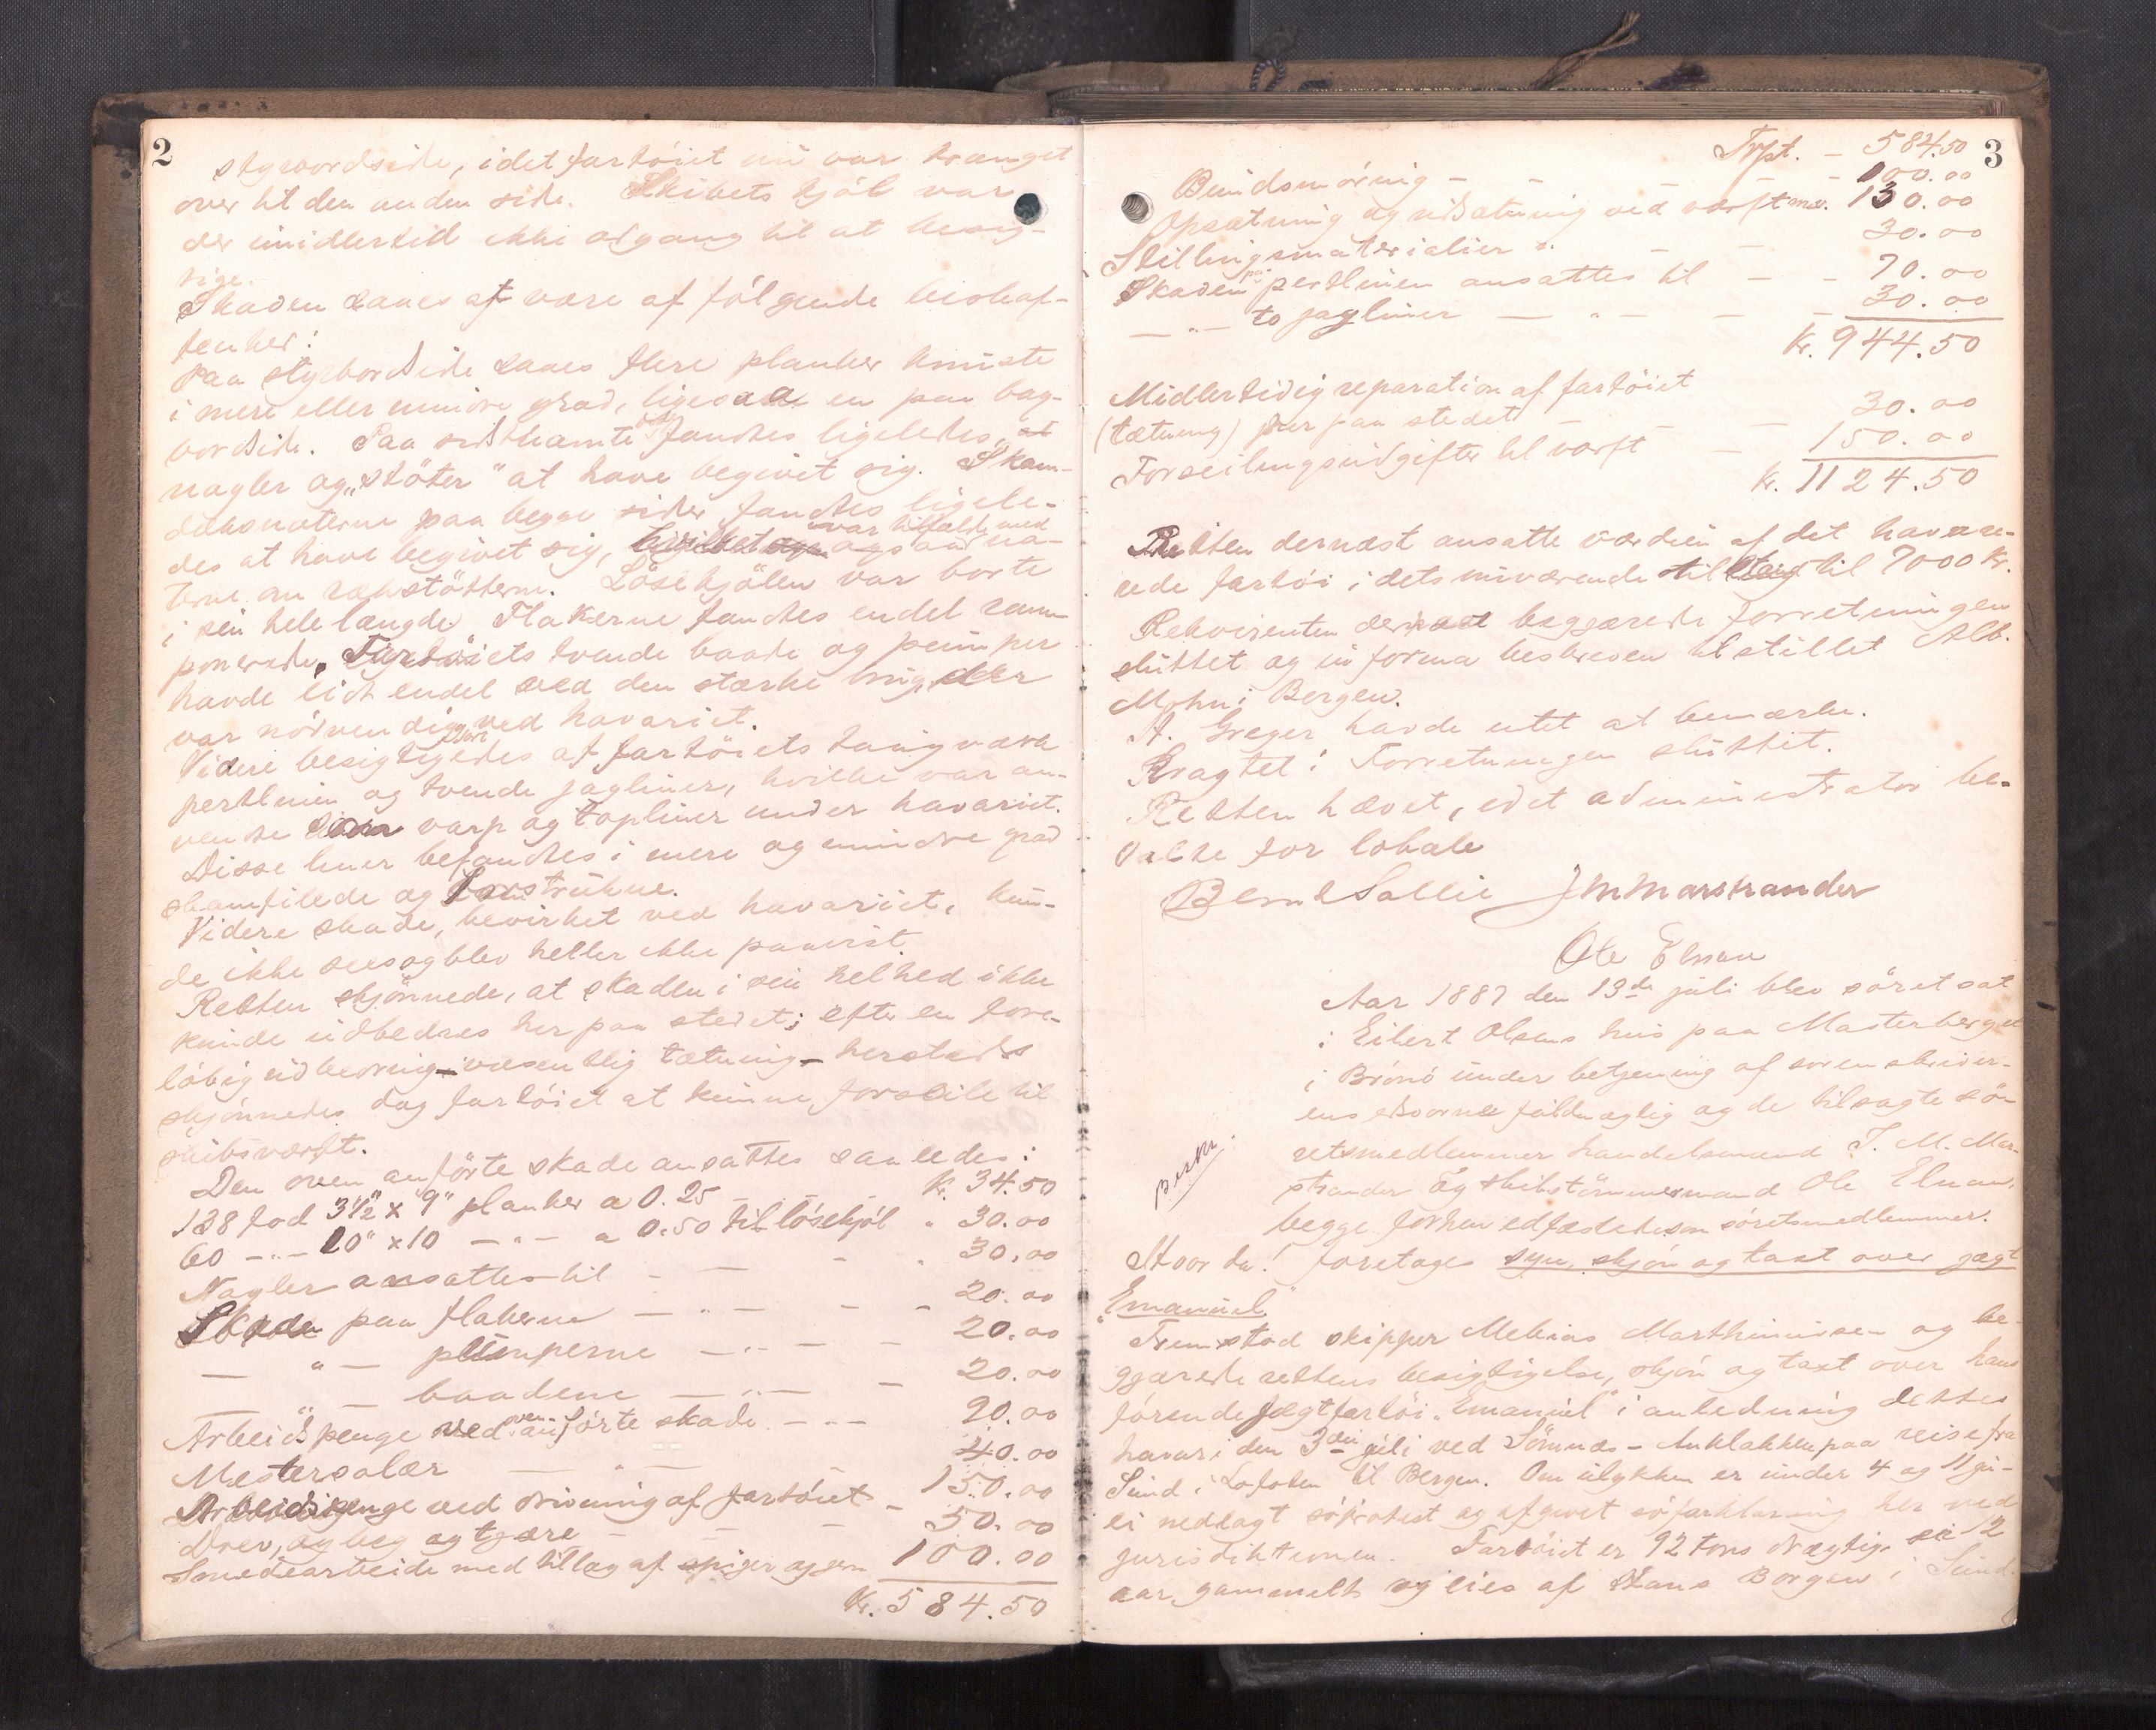 2
styrbordside, idet fartöiet nu var trænget
over til den anden side. Skibets kjöl var
der imidlertid ikke adgang til at besig-
tige.
Skaden saaes at være af fölgende beskaf-
fenhed:
Paa styrbordside saaes flere planker knuste
i mere eller mindre grad, ligesaa en paa bag-
bordside. Paa sidstnævnte side fandtes ligeledes
nagler og "stöter" at have begivet sig. Skan-
dæksnaterne paa begge sider fandtes ligele-
des at have begivet sig, var tilfældet med
ogsaa na-
terne om rækstötterne. Lösekjölen var borte
i sin hele længde. Flakerne fandtes endel ram-
ponerede. Fartöiets tvende baade og pumper
havde lidt endel ved den stærke brug, der
var nödvendig ved havariet.
Videre besigtigedes af fartöiets taugværk
pertlinen og tvende jagliner, hvilke var an-
vendte som varp og topliner under havariet.
Disse liner befandtes i mere og mindre grad
skamfilede og forstrukne.
Videre skade, bevirket ved havariet, kun-
de ikke sees og blev heller ikke paavist.
Retten skjönnede, at skaden i sin helhed ikke
kunde udbedres her paa stedet; efter en fore-
löbig udbedring - væsentlig tætning - hersteds
skjönnedes dog fartöiet at kunne forseile til
skibsværft.
Den oven anförte skade ansattes saaledes:
138 fod 3½" x 9" planker a 0.25 - kr. 34.50
60 -"- 10" x 10 -"- a 0.50 til lösekjöl " 30.00
Nagler ansattes til - - - 30.00
Skade paa flakerne -"- - - 20.00
- " - pumperne -"- - - 20.00
- " - baadene -"- - 20.00
Arbeidspenge ved ovenanförte skade -"- 90.00
Mestersalær - " - 40.00
Arbeidspenge ved drivning af fartöiet - 150.00
Drev, og beg og tjære - - - 50.00
Smedearbeide med tillag af spiger og jern 100.00
Kr. 584.50
3
Trpt. - 584.50
Bundsmöring - - - 100.00
Opsætning og udsætning ved værft m.v. 130.00
Stillingsmaterialier - - 30.00
Skaden paa pertlinen ansattes til - - 70.00
-"- to jagliner -"- - - 30.00
Kr. 944.50
Midlertidig reparation af fartöiet
(tætning) her paa stedet - - 30.00
Forseilingsudgifter til værft - 150.00
Kr. 1124.50
Retten dernæst ansatte værdien af det havare-
rede fartöi i dets nuværende tilstand til 7000 kr.
Rekvirenten dernæst begjærede forretningen
sluttet og in forma beskreven tilstillet Alb.
Mohn i Bergen.
A. Greger havde intet at bemærke.
Eragtet: Forretningen sluttet.
Retten hævet, idet administrator be-
talte for lokale
Bernt Sallie J M Marstrander
Ole Elnan
Aar 1887 den 13de juli blev söret sat
i Eilert Olsens hus paa Masterberget
i Brönö under betjening af sorenskriver-
ens edsvorne fuldmægtig og de tilsagte sö-
retsmedlemmer handelsmand J. M. Mar-
strander og skibstömmermand Ole Elnan,
begge forhen edfæstede som söretsmedlemmer.
Beskr.
Hvor da! foretoges syn, skjön og taxt over jægt
"Emanuel".
Fremstod skipper Mekias Marthinussen og be-
gjærede rettens besigtigelse, skjön og taxt over hans
förende jægtfartöi "Emanuel" i anledning dettes
havari den 3die juli ved Sömnæs - paa reise fra
Sund i Lofoten til Bergen. Om ulykken er under 4 og 11 ju-
li nedlagt söprotest og afgivet söforklaring her ved
jurisdiktionen. Fartöiet er 92 tons drægtig 12
aar gammelt og eies af Hans Borgen i Sund.